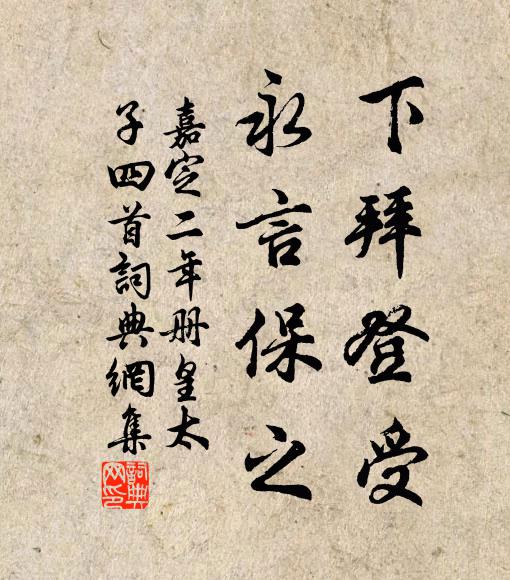 下拜登受
永言保之
嘉定二年册皇太
子四首詞典網集
詞典
网印